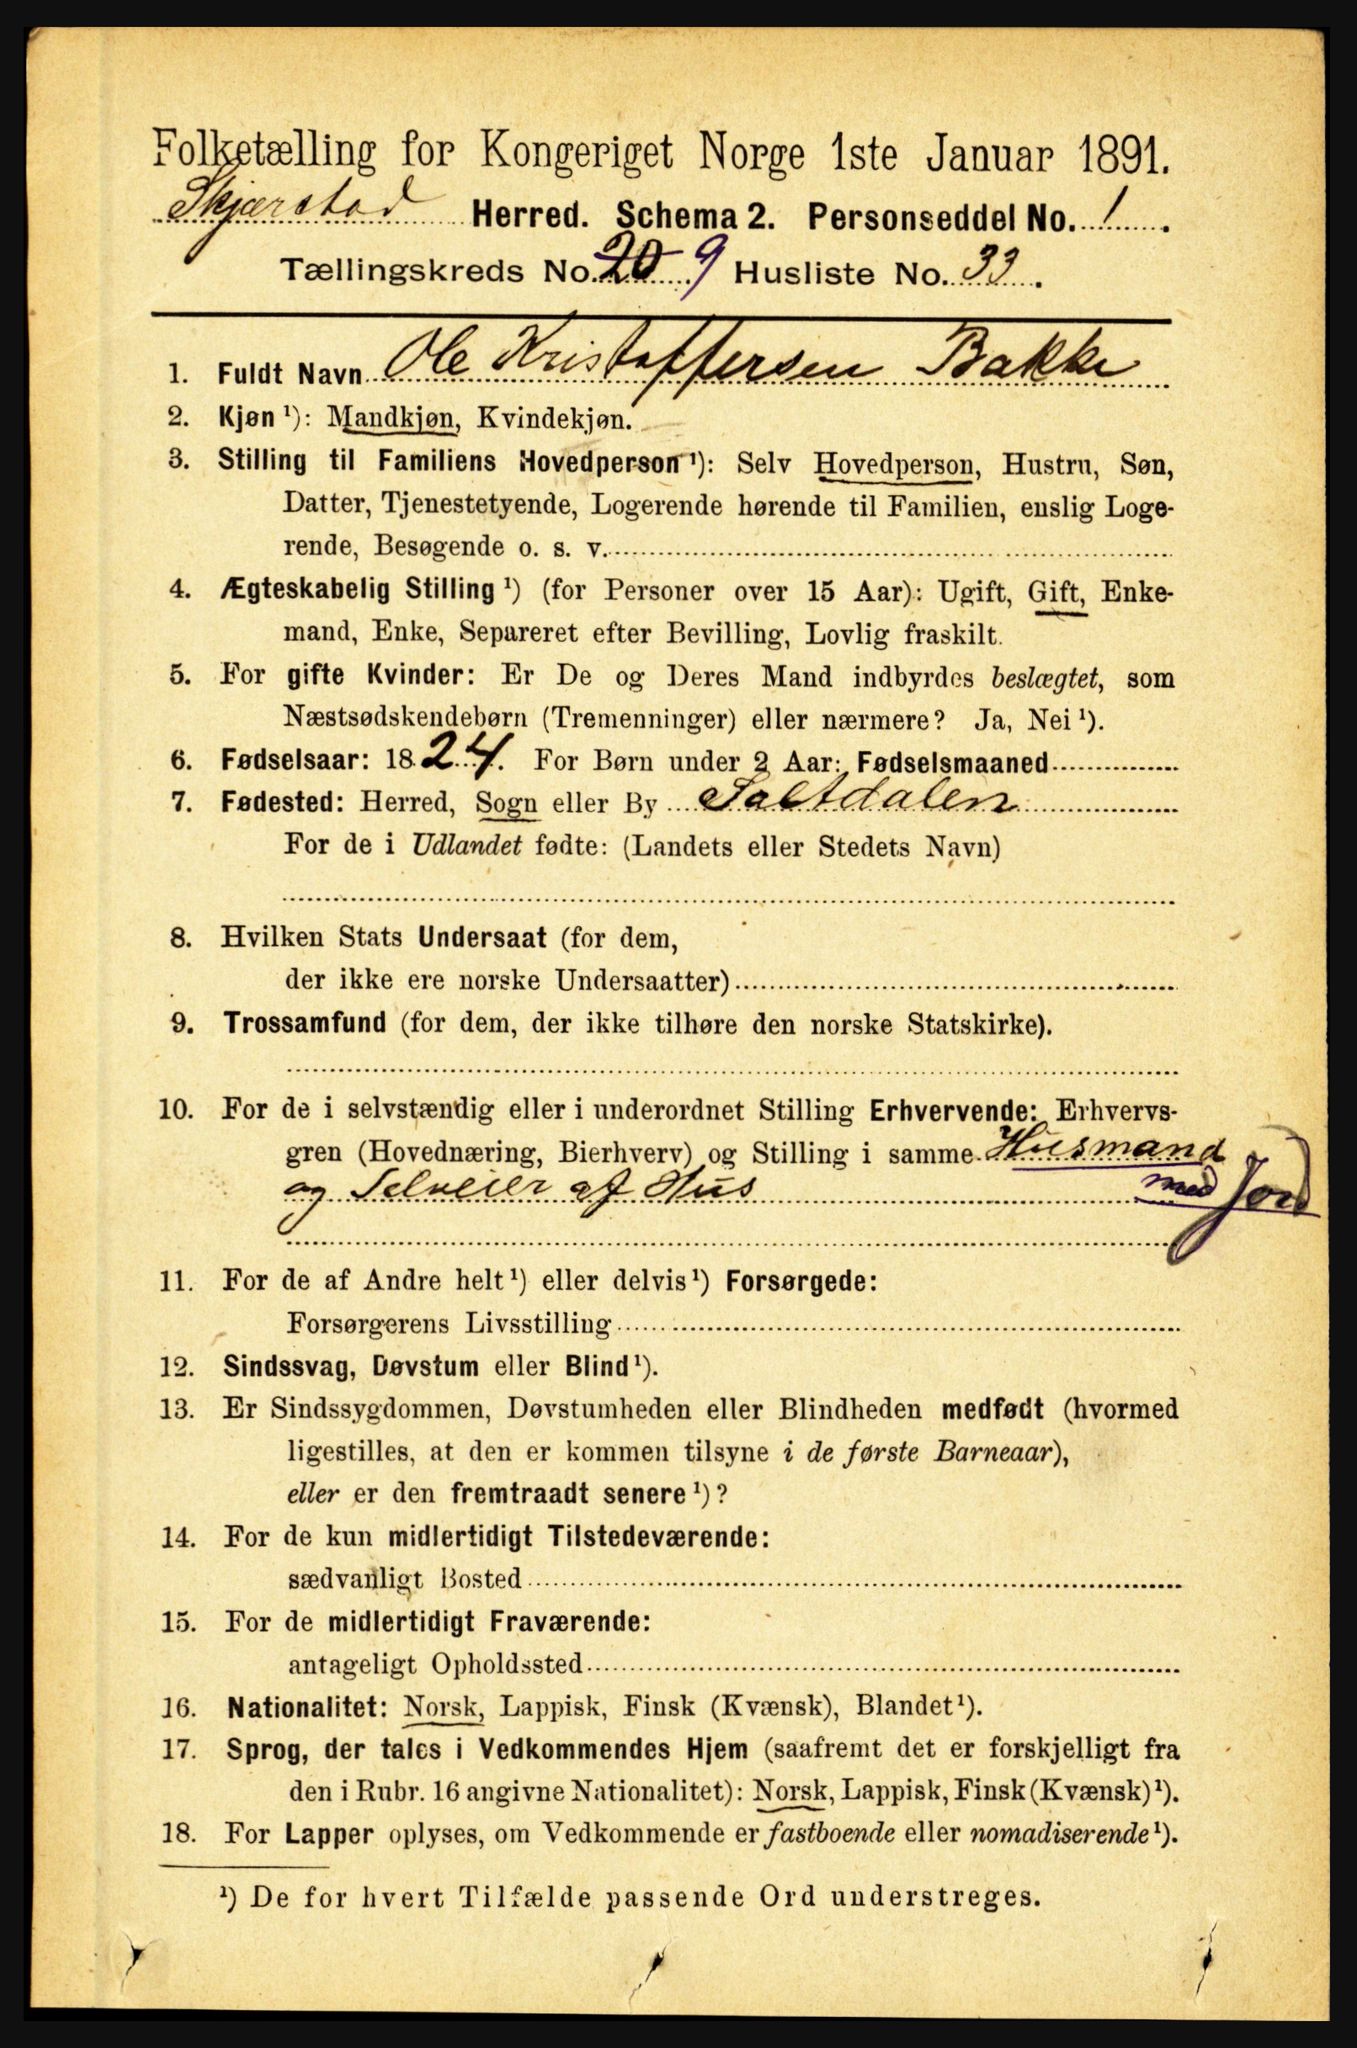 Folketælling for Kongeriget Norge 1ste Januar 1891.
Skjærstad Herred. Schema 2. Personseddel No. 1.
Tællingskreds No. 20 9 Husliste No. 33.
1. Fuldt Navn Ole Kristoffersen Bakke
2. Kjøn ¹): Mandkjøn, Kvindekjøn.
3. Stilling til Familiens Hovedperson ¹): Selv Hovedperson, Hustru, Søn,
Datter, Tjenestetyende, Logerende hørende til Familien, enslig Loge-
rende, Besøgende o. s. v.
4. Ægteskabelig Stilling ¹) (for Personer over 15 Aar): Ugift, Gift, Enke-
mand, Enke, Separeret efter Bevilling, Lovlig fraskilt.
5. For gifte Kvinder: Er De og Deres Mand indbyrdes beslægtet, som
Næstsødskendebørn (Tremenninger) eller nærmere? Ja, Nei ¹).
6. Fødselsaar: 1824. For Børn under 2 Aar: Fødselsmaaned
7. Fødested: Herred, Sogn eller By Saltdalen
For de i Udlandet fødte: (Landets eller Stedets Navn)
8. Hvilken Stats Undersaat (for dem,
der ikke ere norske Undersaatter)
9. Trossamfund (for dem, der ikke tilhøre den norske Statskirke).
10. For de i selvstændig eller i underordnet Stilling Erhvervende: Erhvervs-
gren (Hovednæring, Bierhverv) og Stilling i samme Husmand
og Selveier af Hus med Jord
11. For de af Andre helt ¹) eller delvis ¹) Forsørgede:
Forsørgerens Livsstilling
12. Sindssvag, Døvstum eller Blind ¹).
13. Er Sindssygdommen, Døvstumheden eller Blindheden medfødt (hvormed
ligestilles, at den er kommen tilsyne i de første Barneaar),
eller er den fremtraadt senere ¹)?
14. For de kun midlertidigt Tilstedeværende:
sædvanligt Bosted
15. For de midlertidigt Fraværende:
antageligt Opholdssted
16. Nationalitet: Norsk, Lappisk, Finsk (Kvænsk), Blandet ¹).
17. Sprog, der tales i Vedkommendes Hjem (saafremt det er forskjelligt fra
den i Rubr. 16 angivne Nationalitet): Norsk, Lappisk, Finsk (Kvænsk) ¹).
18. For Lapper oplyses, om Vedkommende er fastboende eller nomadiserende ¹).
¹) De for hvert Tilfælde passende Ord understreges.